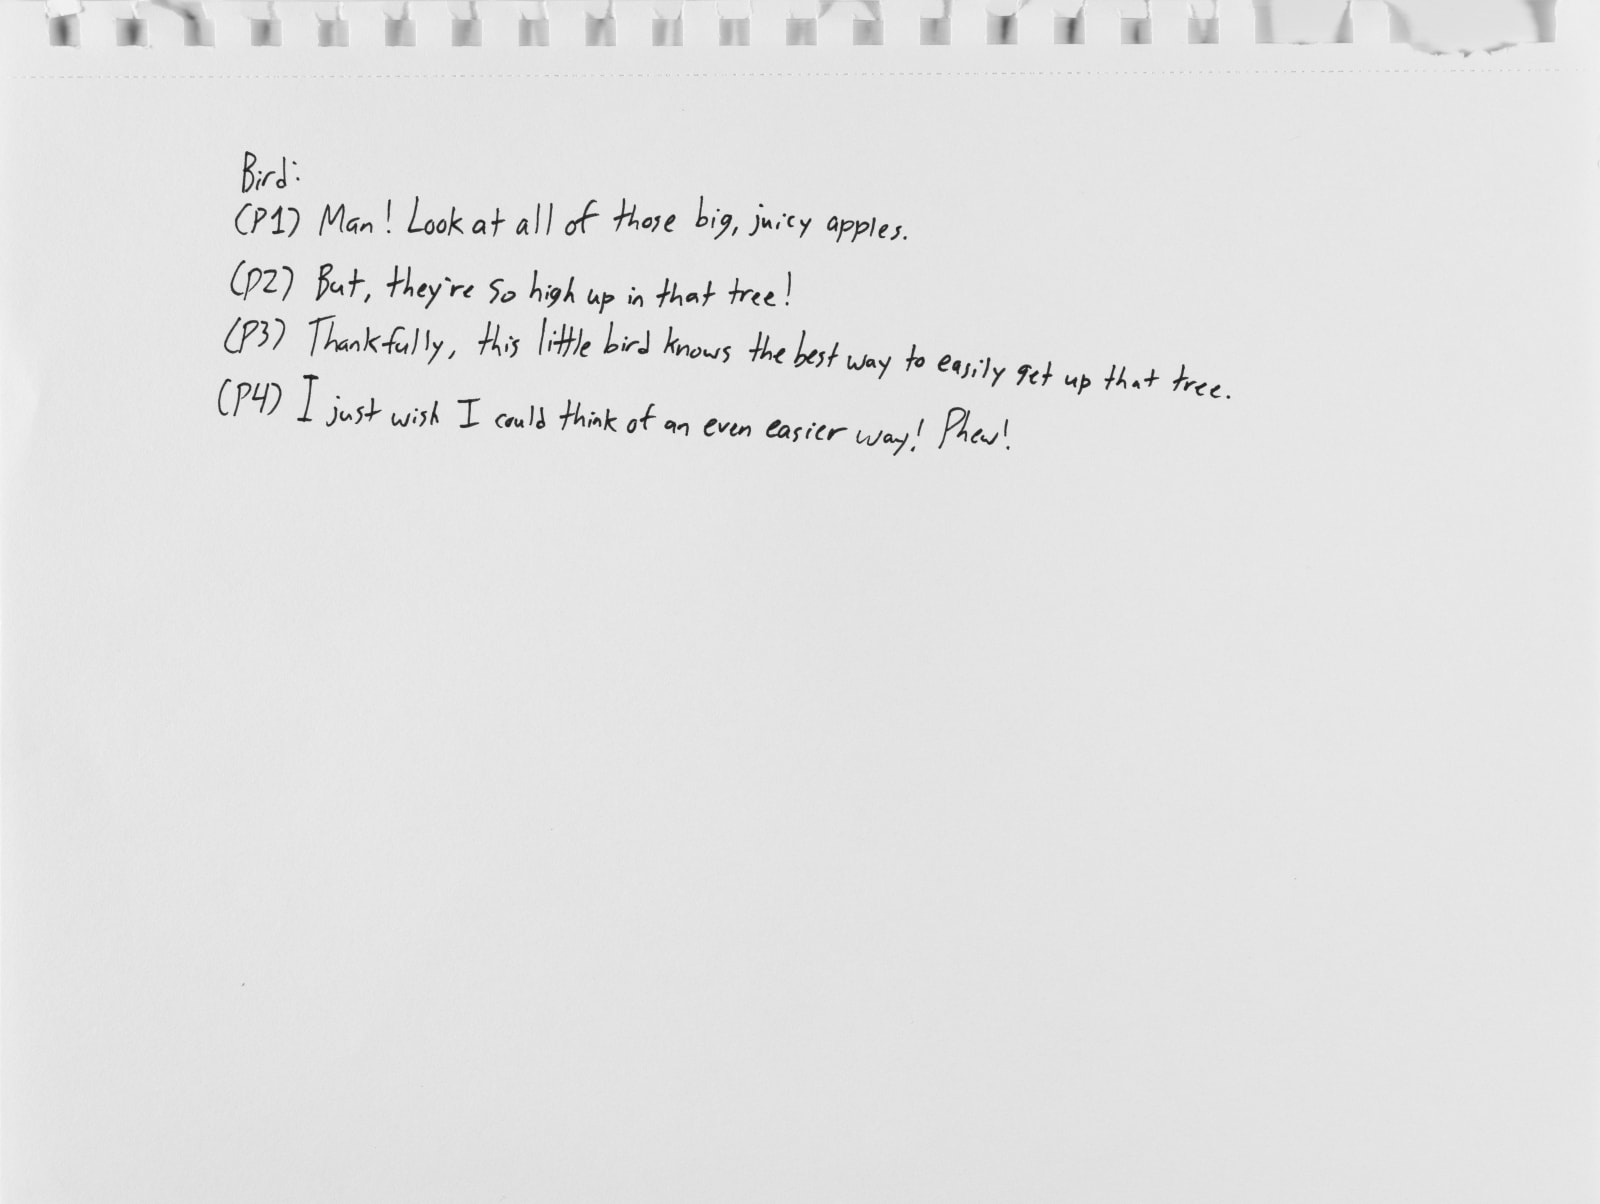 Bird:
(P1) Man! Look at all of those big, juicy apples.
(P2) But, they're so high up in that tree!
(P3) Thankfully, this little bird knows the best way to easily get up that tree.
(P4) I just wish I could think of an even easier way! Phew!